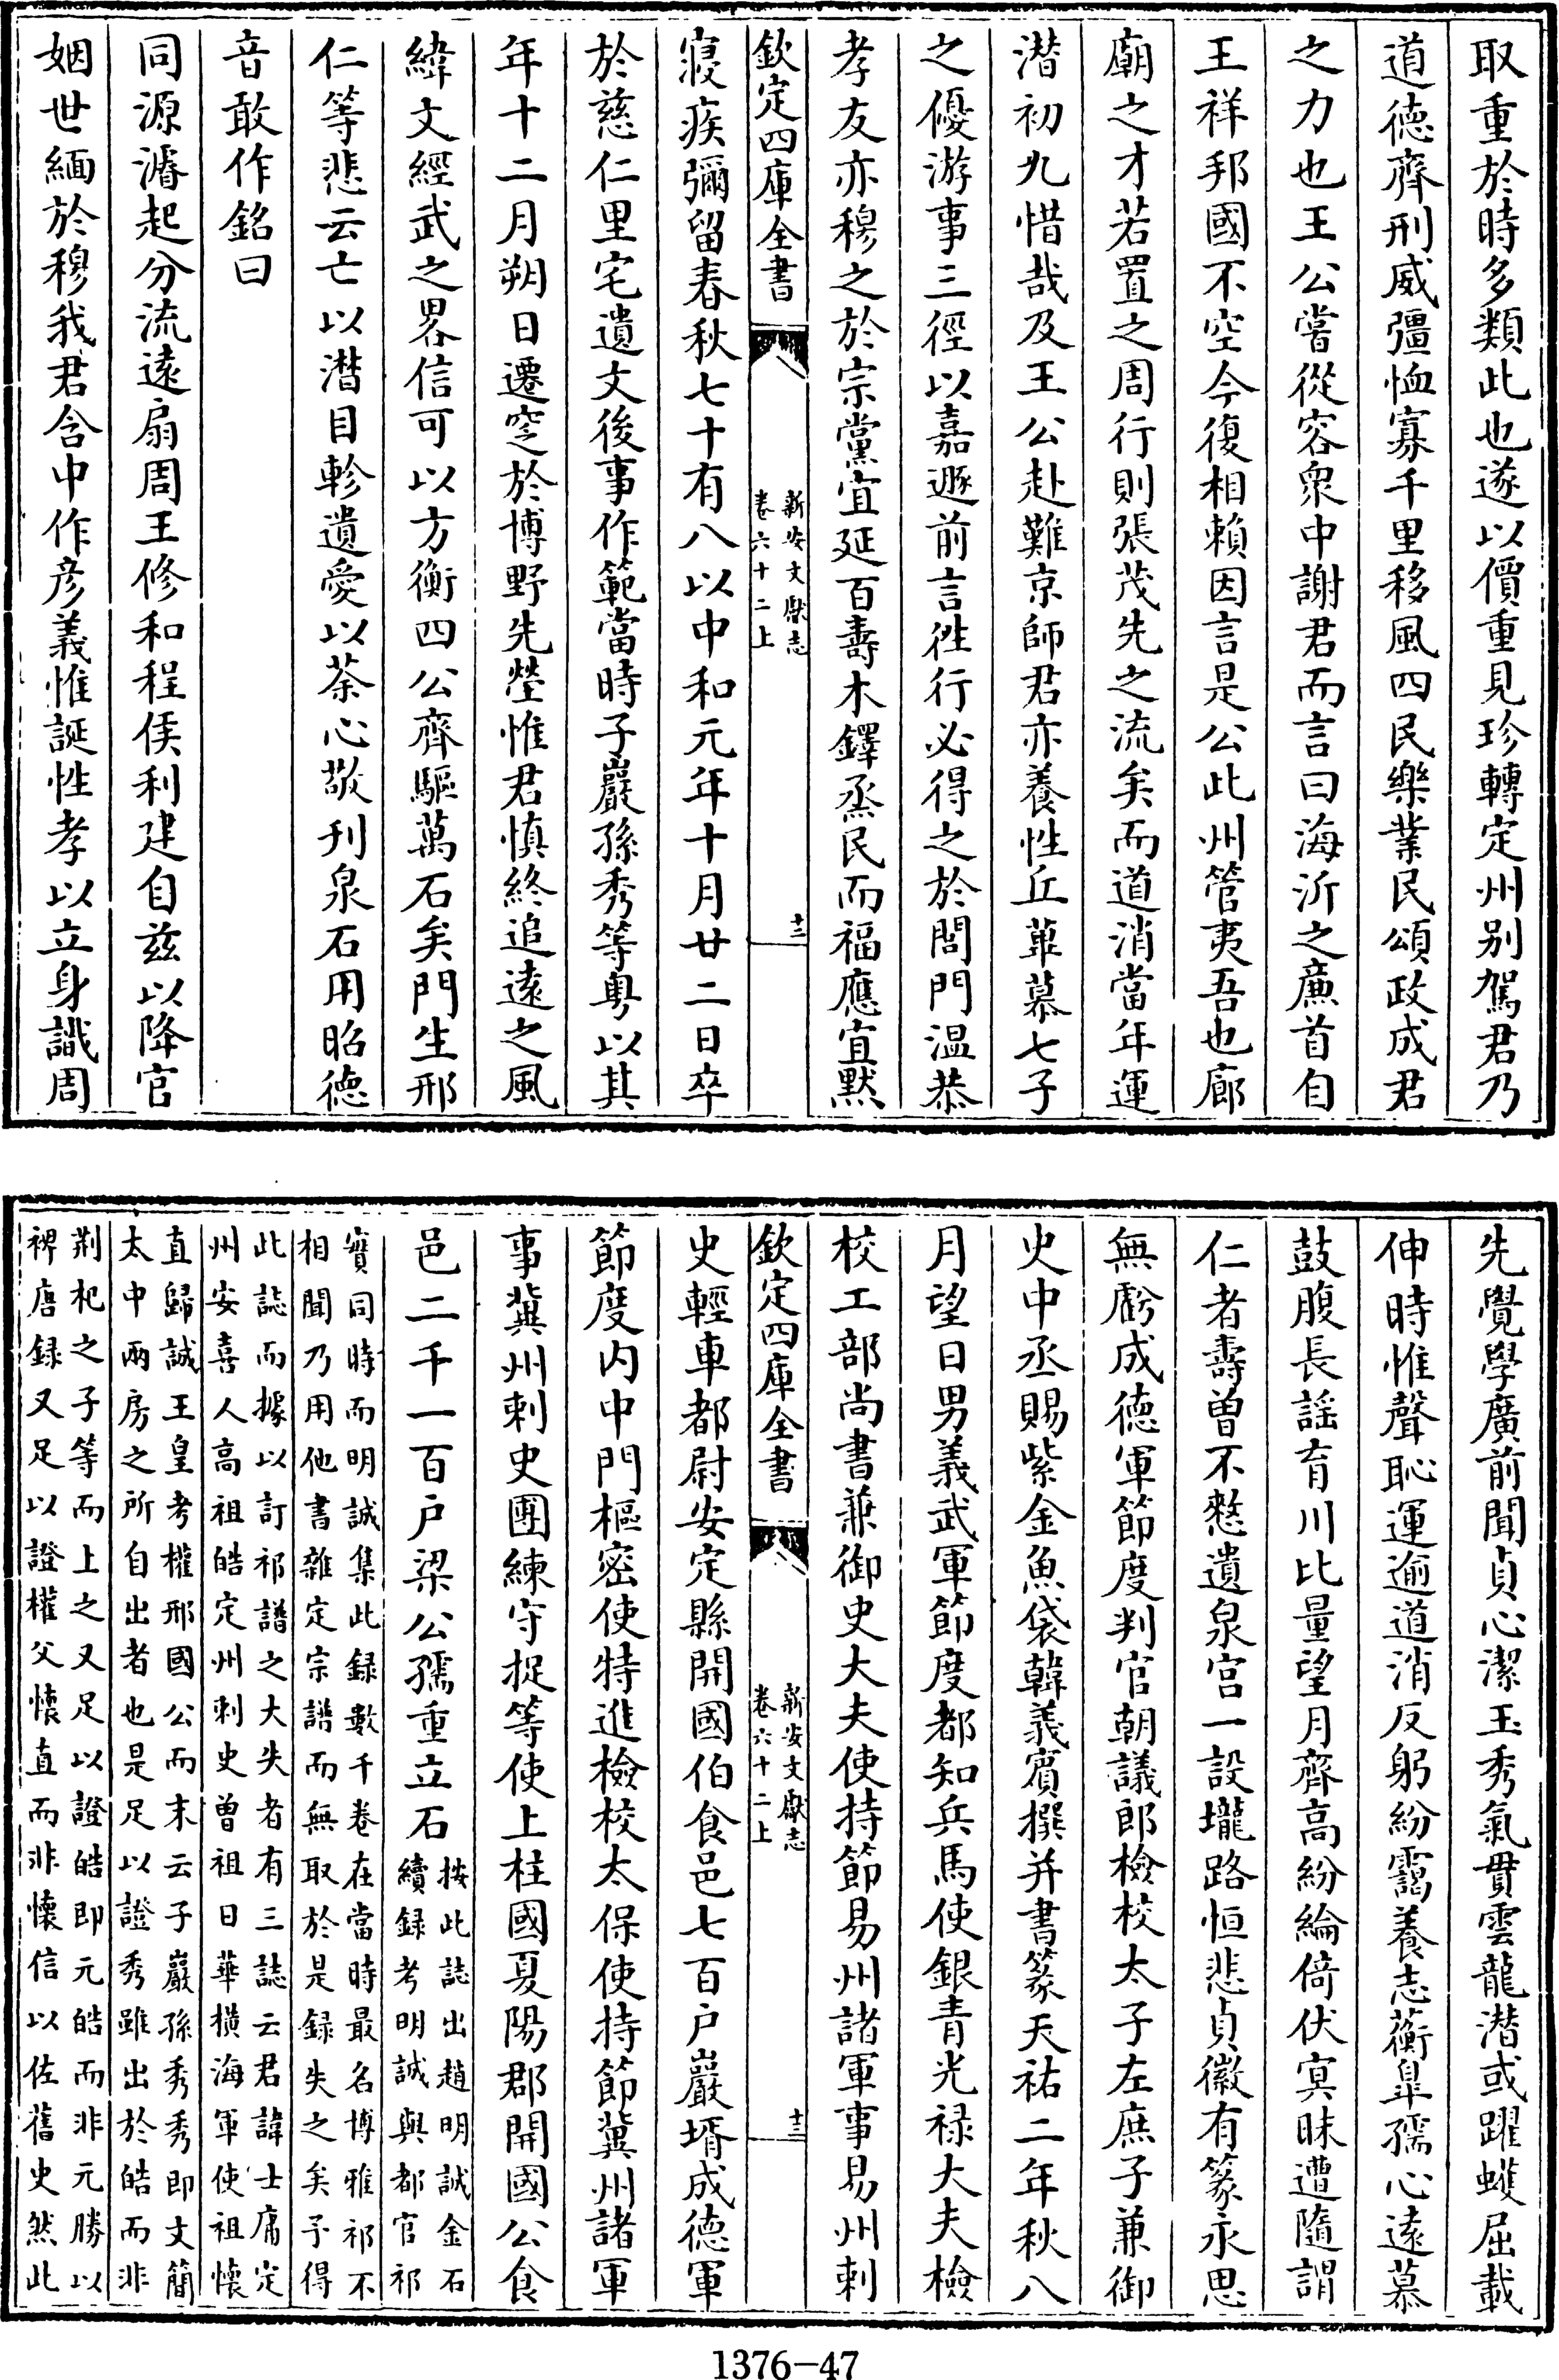 取重於時多類此也遂以價重見珍轉定州别駕君乃
道徳齊刑威彊恤寡千里移風四民樂業民頌政成君
之力也王公嘗從容衆中謝君而言曰海沂之廉首自
王祥邦國不空今復相賴因言是公此州管夷吾也廊
廟之才若置之周行則張茂先之流矣而道消當年運
潛初九惜哉及王公赴難京師君亦養性丘蓽慕七子
之優游事三徑以嘉遯前言徃行必得之於閭門温恭
孝友亦穆之於宗黨宜延百壽木鐸烝民而福應宜黙
欽定四庫全書
新安文獻志
卷六十二上
十二
寢疾彌留春秋七十有八以中和元年十月廿二日卒
於慈仁里宅遺文後事作範當時子巖孫秀等粤以其
年十二月朔日遷窆於博野先塋惟君慎終追遠之風
緯文經武之畧信可以方衡四公齊驅萬石矣門生邢
仁等悲云亡以潛目軫遺愛以荼心敬刊泉石用昭徳
音敢作銘曰
同源濬起分流遠扇周王修和程侯利建自兹以降官
姻世緬於穆我君含中作彦義惟誕性孝以立身識周
先覺學廣前聞貞心潔玉秀氣貫雲龍潛或躍蠖屈載
伸時惟聲恥運逾道消反躬紛靄養志蘅臯孺心遠慕
鼓腹長謡育川比量望月齊高紛綸倚伏㝠昧遭隨謂
仁者壽曽不憗遺泉宫一設壠路恒悲貞徽有篆永思
無虧成徳軍節度判官朝議郎檢校太子左庶子兼御
史中丞賜紫金魚袋韓義賓撰并書篆天祐二年秋八
月望日男義武軍節度都知兵馬使銀青光禄大夫檢
校工部尚書兼御史大夫使持節易州諸軍事易州刺
欽定四庫全書
新安文獻志
卷六十二上
十三
史輕車都尉安定縣開國伯食邑七百户巖壻成徳軍
節度内中門樞密使特進檢校太保使持節冀州諸軍
事冀州刺史團練守捉等使上柱國夏陽郡開國公食
邑二千一百户梁公孺重立石
按此誌出趙明誠金石
續録考明誠與都官祁
寳同時而明誠集此録數千卷在當時最名博雅祁不
相聞乃用他書雜定宗譜而無取於是録失之矣予得
此誌而據以訂祁譜之大失者有三誌云君諱士庸定
州安喜人高祖皓定州刺史曽祖日華横海軍使祖懷
直歸誠王皇考權邢國公而末云子巖孫秀秀即文簡
太中兩房之所自出者也是足以證秀雖出於皓而非
荆杞之子等而上之又足以證皓即元皓而非元勝以
裨唐録又足以證權父懷直而非懷信以佐舊史然此
1376-47